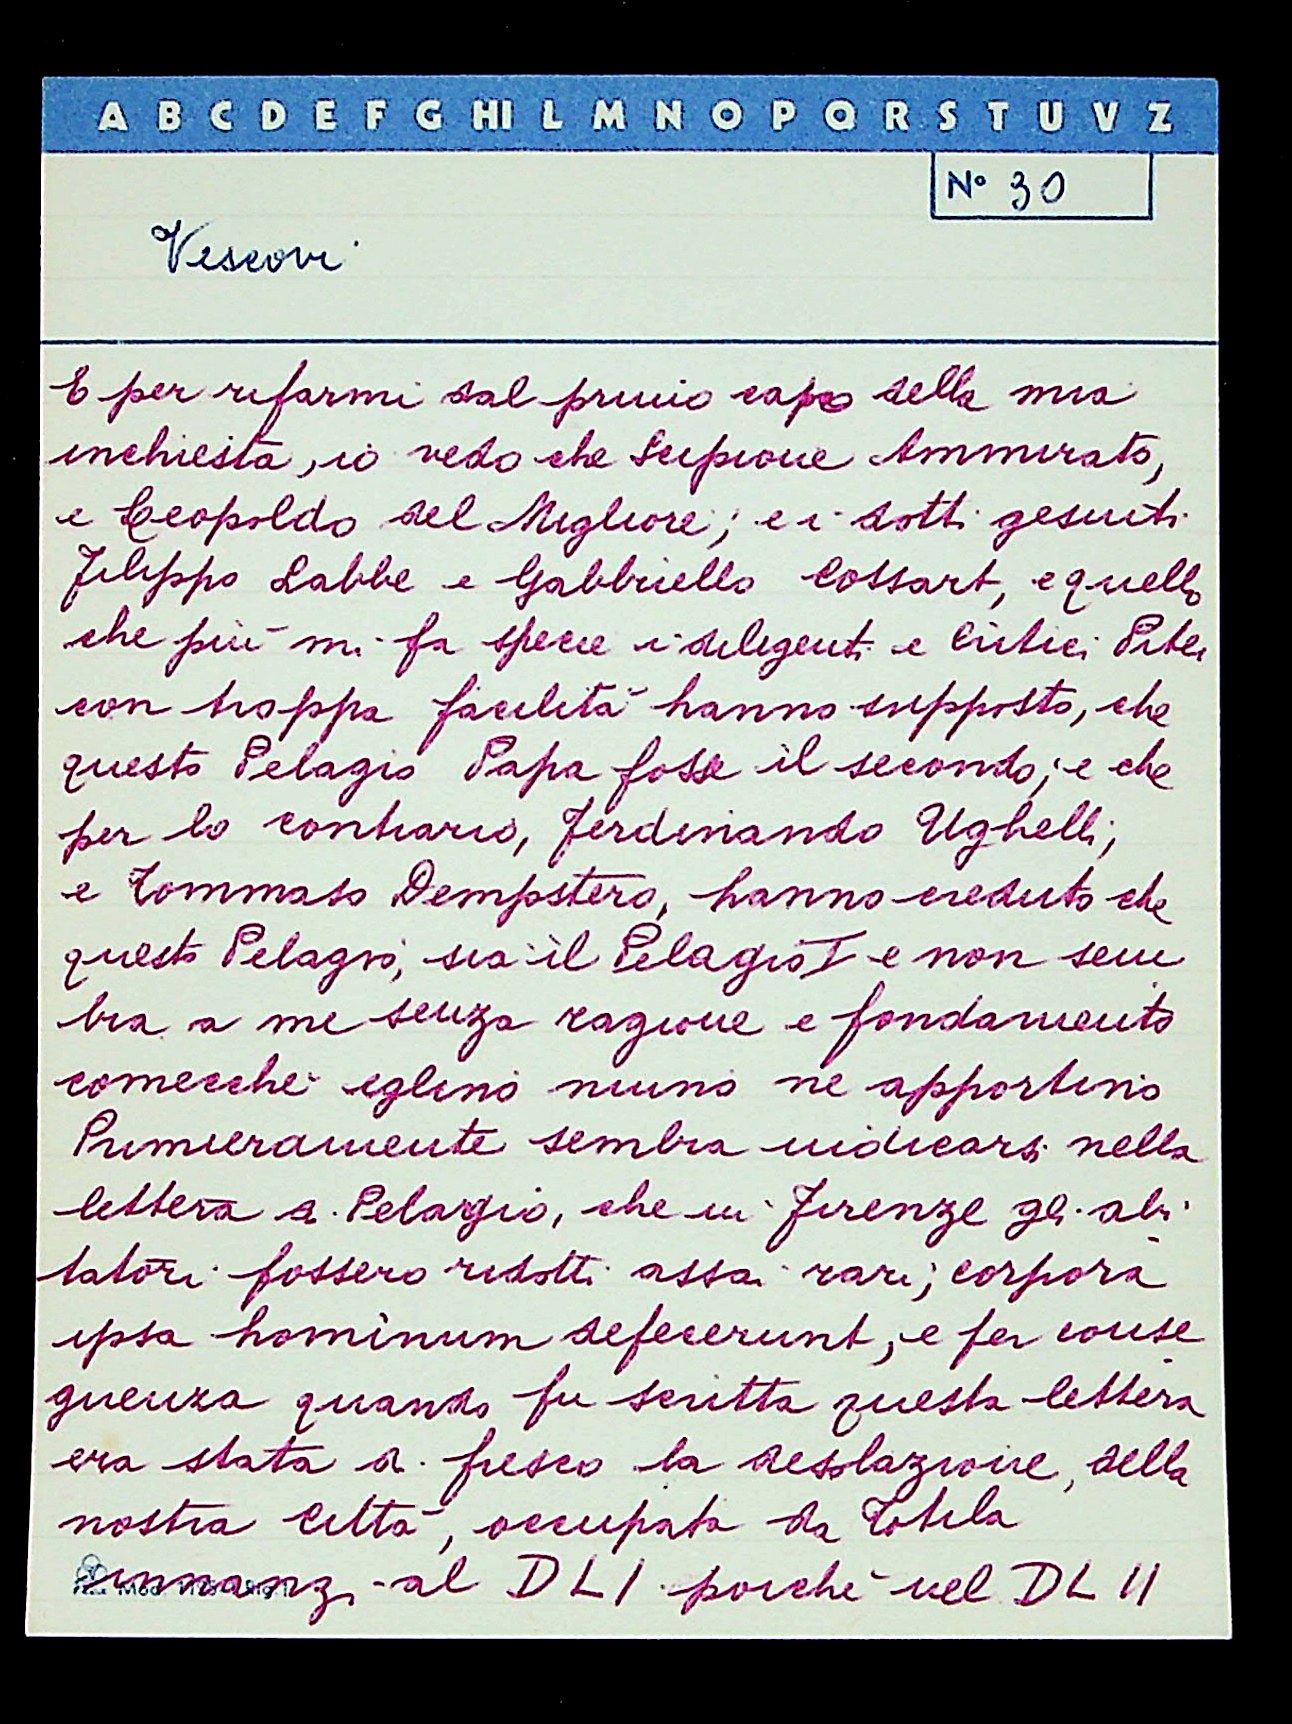 A B C D E F G HI L M N O P Q R S T U V Z
N° 30
Vescovi
E per rifarmi dal primo capo della mia
inchiesta, io vedo che Scipione Ammirato,
e Leopoldo del Migliore; e i dotti gesuiti
Filippo Labbe e Gabbriello Cossart, e quello
che più mi fa specie i diligenti e Critici
con troppa facilità hanno supposto, che
questo Pelagio Papa fosse il secondo; e che
per lo contrario, Ferdinando Ughelli;
e Tommaso Dempstero, hanno creduto che
questo Pelagio, sia il Pelagio I e non sem
bra a me senza ragione e fondamento
comecché eglino niuno ne apportino
Primieramente sembra indicarsi nella
lettera di Pelagio, che in Firenze gli abi
tatori fossero ridotti assai rari; corpora
ipsa hominum defecerunt, e per conse
guenza quando fu scritta questa lettera
era stata di fresco la desolazione, della
nostra Città, occupata da Totila
innanzi al DLI poiché nel DLII